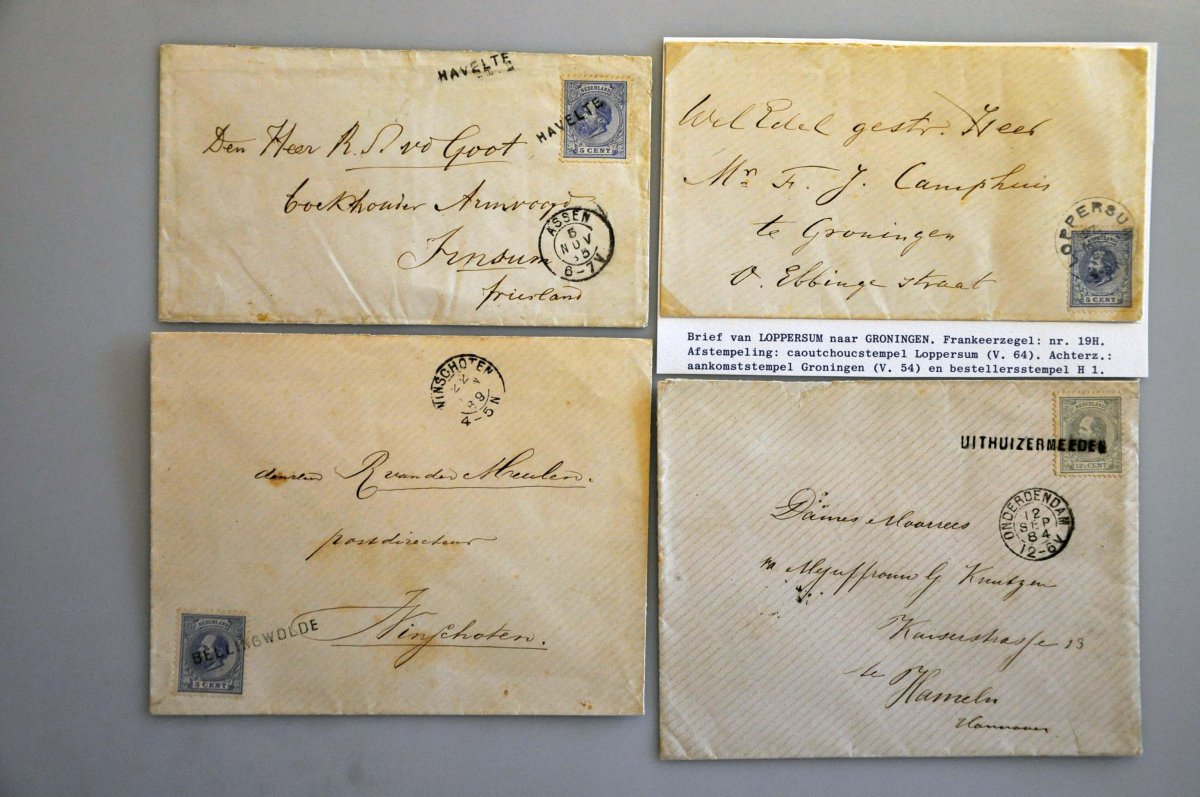 HAVELTE
HAVELTE
NEDERLAND
5 CENT
Den Heer R. S. vd Goot
boekhouder Armvoogd
Irnsum
friesland
ASSEN
5
NOV
85
6-7V
Wel Edel gestr. Heer
Mr F. J. Camphuis
te Groningen
O. Ebbinge straat
LOPPERSU
5 CENT
Brief van LOPPERSUM naar GRONINGEN. Frankeerzegel: nr. 19H.
Afstempeling: caoutchoucstempel Loppersum (V. 64). Achterz.:
aankomststempel Groningen (V. 54) en bestellersstempel H 1.
WINSCHOTEN
22
89
4-5N
R van der Meulen.
postdirecteur
Winschoten.
NEDERLAND
BELLINGWOLDE
5 CENT
NEDERLAND
UITHUIZERMEEDEN
12½ CENT
ONDERDENDAM
12
SEP
84
12-6V
Dames Moorrees
pa Mejuffrouw G Knutzen
Kaiserstrasse 13
te
Hameln
Hannover